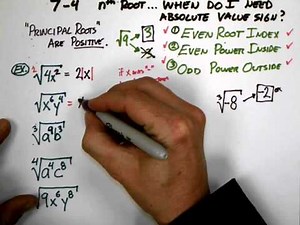 7-4 nth Root... When do I need
Absolute Value Sign?
"Principal Roots"
Are Positive.
√9 → 3
① Even Root Index ✓
② Even Power Inside ✓
③ Odd Power Outside ✓
Ex: √4x² = 2|x|
if x was
√x⁶y⁴ =
∛-8 → -2 ok
∛a⁹b³
∜a⁴c⁸
√9x⁶y⁸